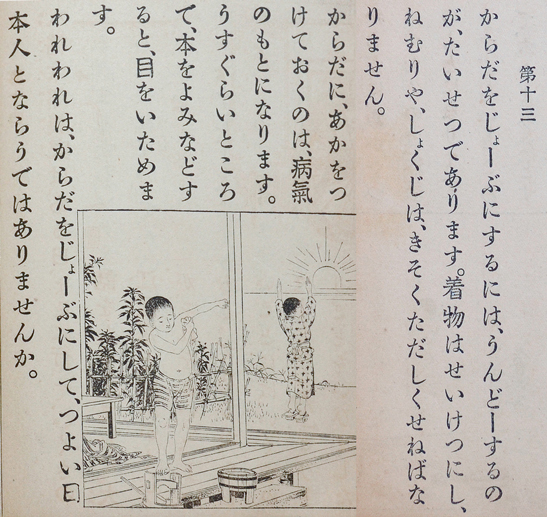 第十三
からだをじょーぶにするには、うんどーするの
が、たいせつであります。着物はせいけつにし、
ねむりや、しょくじは、きそくただしくせねばな
りません。
からだに、あかをつ
けておくのは、病氣
のもとになります。
うすぐらいところ
で、本をよみなどす
ると、目をいためま
す。
われわれは、からだをじょーぶにして、つよい日
本人とならうではありませんか。